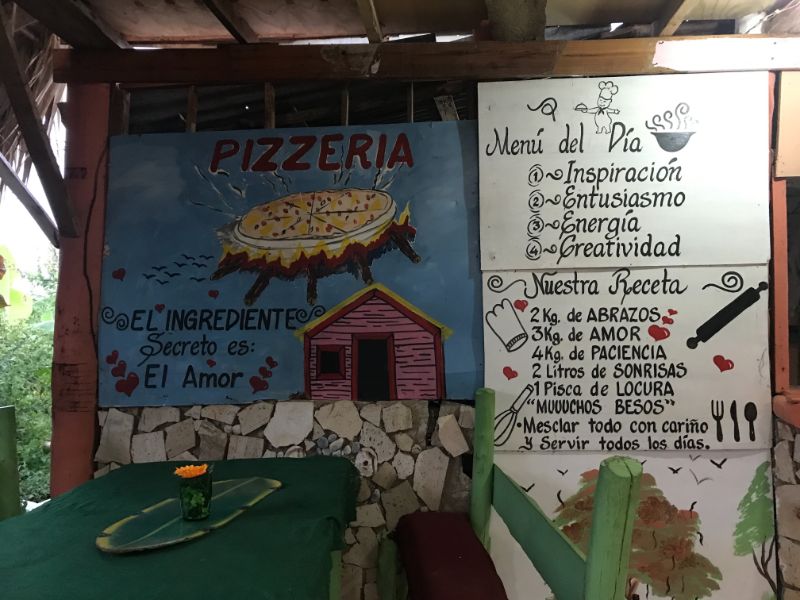 PIZZERIA
EL INGREDIENTE
Secreto es:
El Amor
Menú del Día
1~Inspiración
2~Entusiasmo
3~Energía
4~Creatividad
Nuestra Receta
2 Kg. de ABRAZOS
3Kg. de AMOR
4Kg. de PACIENCIA
2 Litros de SONRISAS
1 Pisca de LOCURA
"MUUUCHOS BESOS"
•Mesclar todo con cariño
Y Servir todos los días.